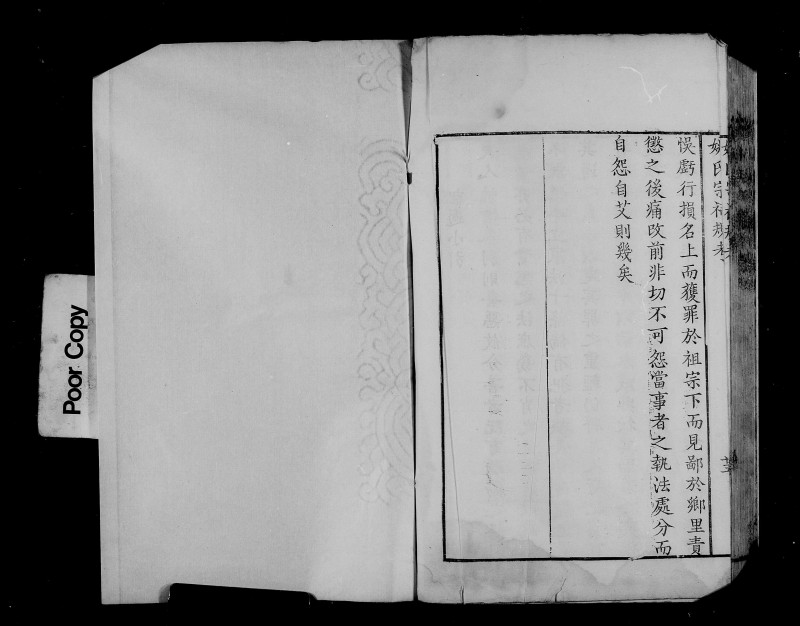 氏宗祠
悞虧行損名上而獲罪於祖宗下而見鄙於鄉里責
懲之後痛改前非切不可怨當事者之執法處分而
自怨自艾則幾矣
Poor Copy